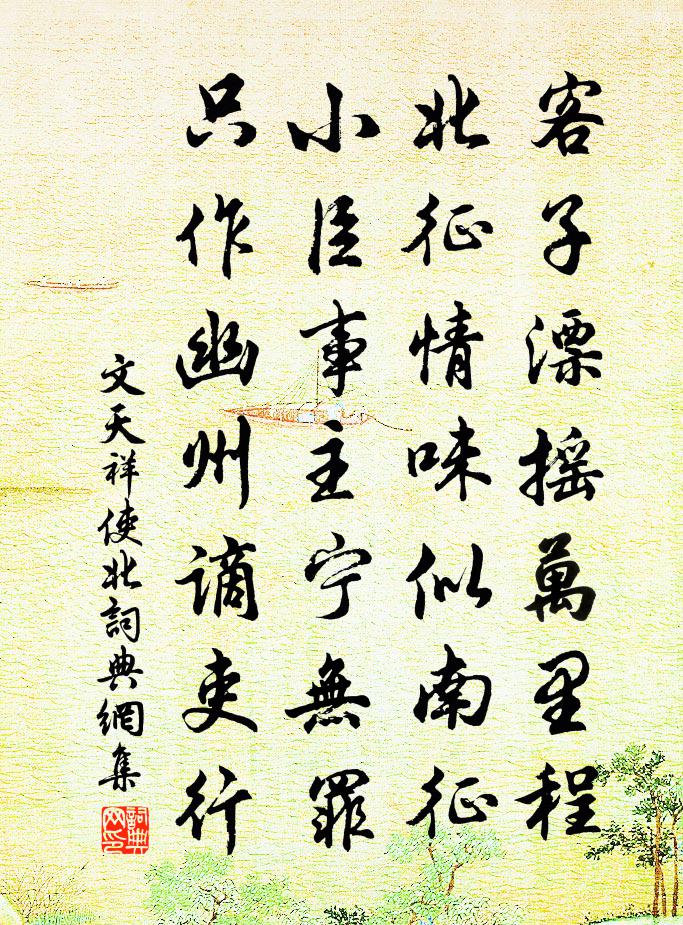 客子漂摇萬里程
北征情味似南征
小臣事主宁無罪
只作幽州謫吏行
文天祥使北詞典網集
詞典网印